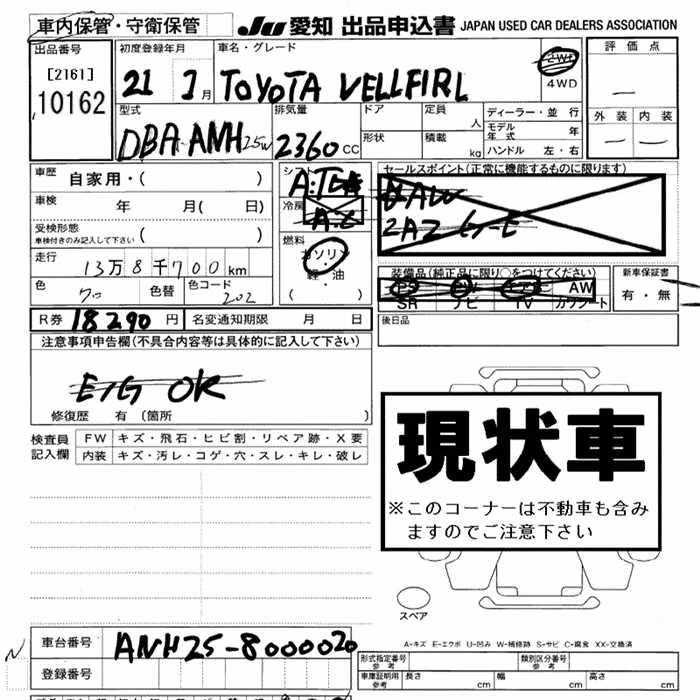 車内保管・守衛保管
JU 愛知 出品申込書 JAPAN USED CAR DEALERS ASSOCIATION
出品番号
[2161]
10162
初度登録年月
21 7月
車名・グレード
TOYOTA VELLFIRL
2WD
4WD
評価点
外装 内装
型式
DBA-ANH25W
排気量
2360cc
ドア
形状
定員 人
積載 kg
ディーラー・並行
モデル年式 年
ハンドル 左・右
車歴 自家用・( )
車検 年 月( 日)
受検形態
車検付きのみ記入して下さい ( )
走行 13万8千700km
色 色替 色コード 202
シフト
冷房
A・C
燃料
ガソリン
・
軽・油
( )
セールスポイント(正常に機能するものに限ります)
AW
2AZ
装備品(純正品に限り○をつけてください)
AW
SR ナビ TV カワシート
新車保証書
有・無
後日品
R券 18290円 名変通知期限 月 日
注意事項申告欄(不具合内容等は具体的に記入して下さい)
E/G OK
修復歴 有(箇所 )
検査員記入欄
FW キズ・飛石・ヒビ割・リペア跡・X要
内装 キズ・汚レ・コゲ・穴・スレ・キレ・破レ
現状車
※このコーナーは不動車も含みますのでご注意下さい
スペア
A-キズ E-エクボ U-凹み W-補修跡 S-サビ C-腐食 XX-交換済
N
車台番号 ANH25-8000020
登録番号
形式指定番号 参考
類別区分番号 参考
車庫証明用 参考 長さ cm 幅 cm 高さ cm